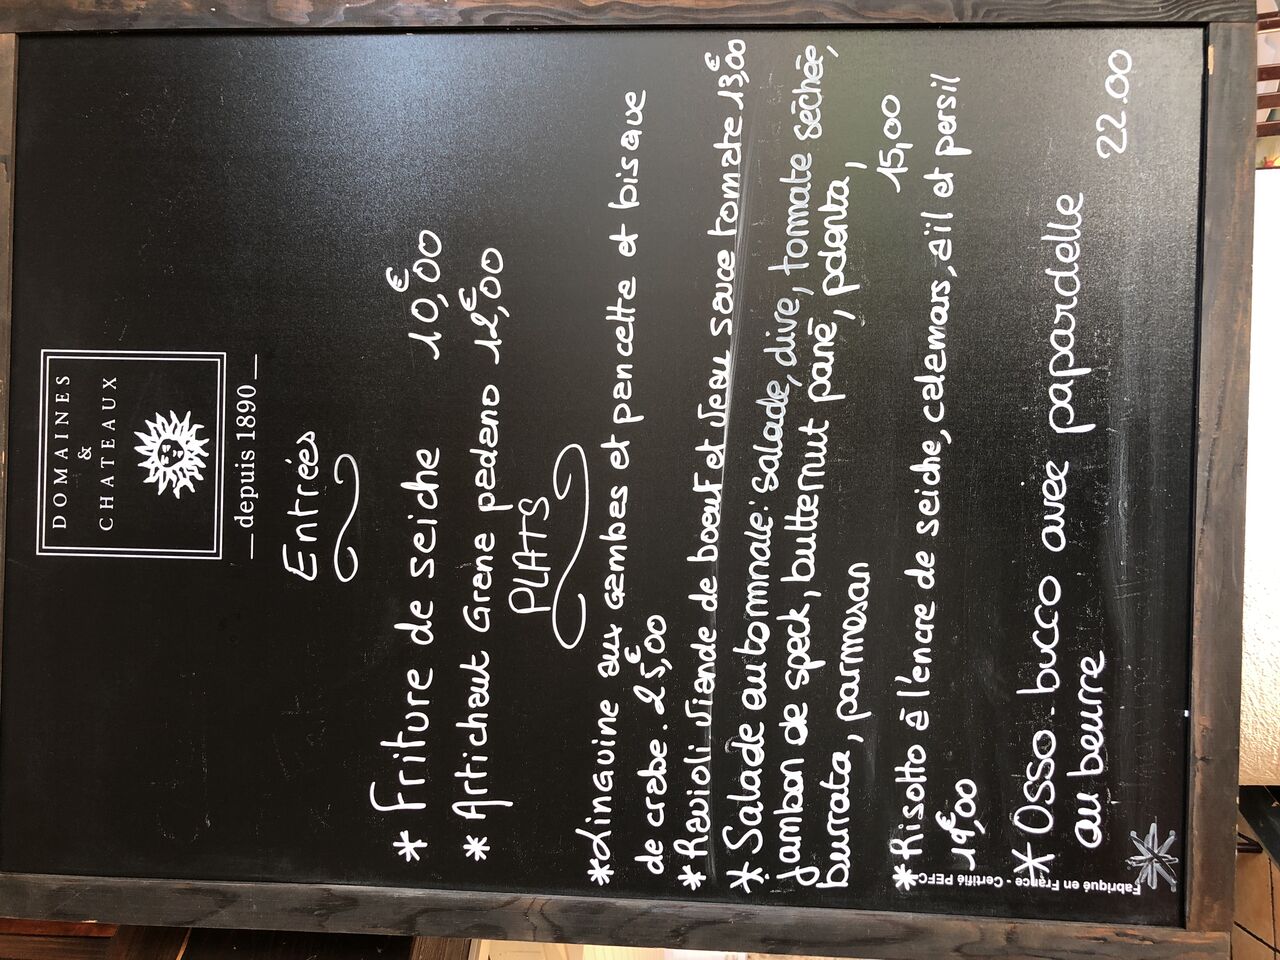 DOMAINES
&
CHATEAUX
depuis 1890
Entrées
* Friture de seiche 10,00€
* Artichaut Grana padano 12,00€
PLATS
* Linguine aux Gambas et pancetta et bisque
de crabe. 25,00€
* Ravioli viande de boeuf et veau sauce tomate 13,00€
* Salade automnale: salade, olive, tommate séchée,
jambon de speck, butternut pané, polenta,
burrata, parmesan 15,00
* Risotto à l'encre de seiche, calamars, ail et persil
19,00€
* Osso.bucco avec papardelle
au beurre 22.00
Fabriqué en France - Certifié PEFC